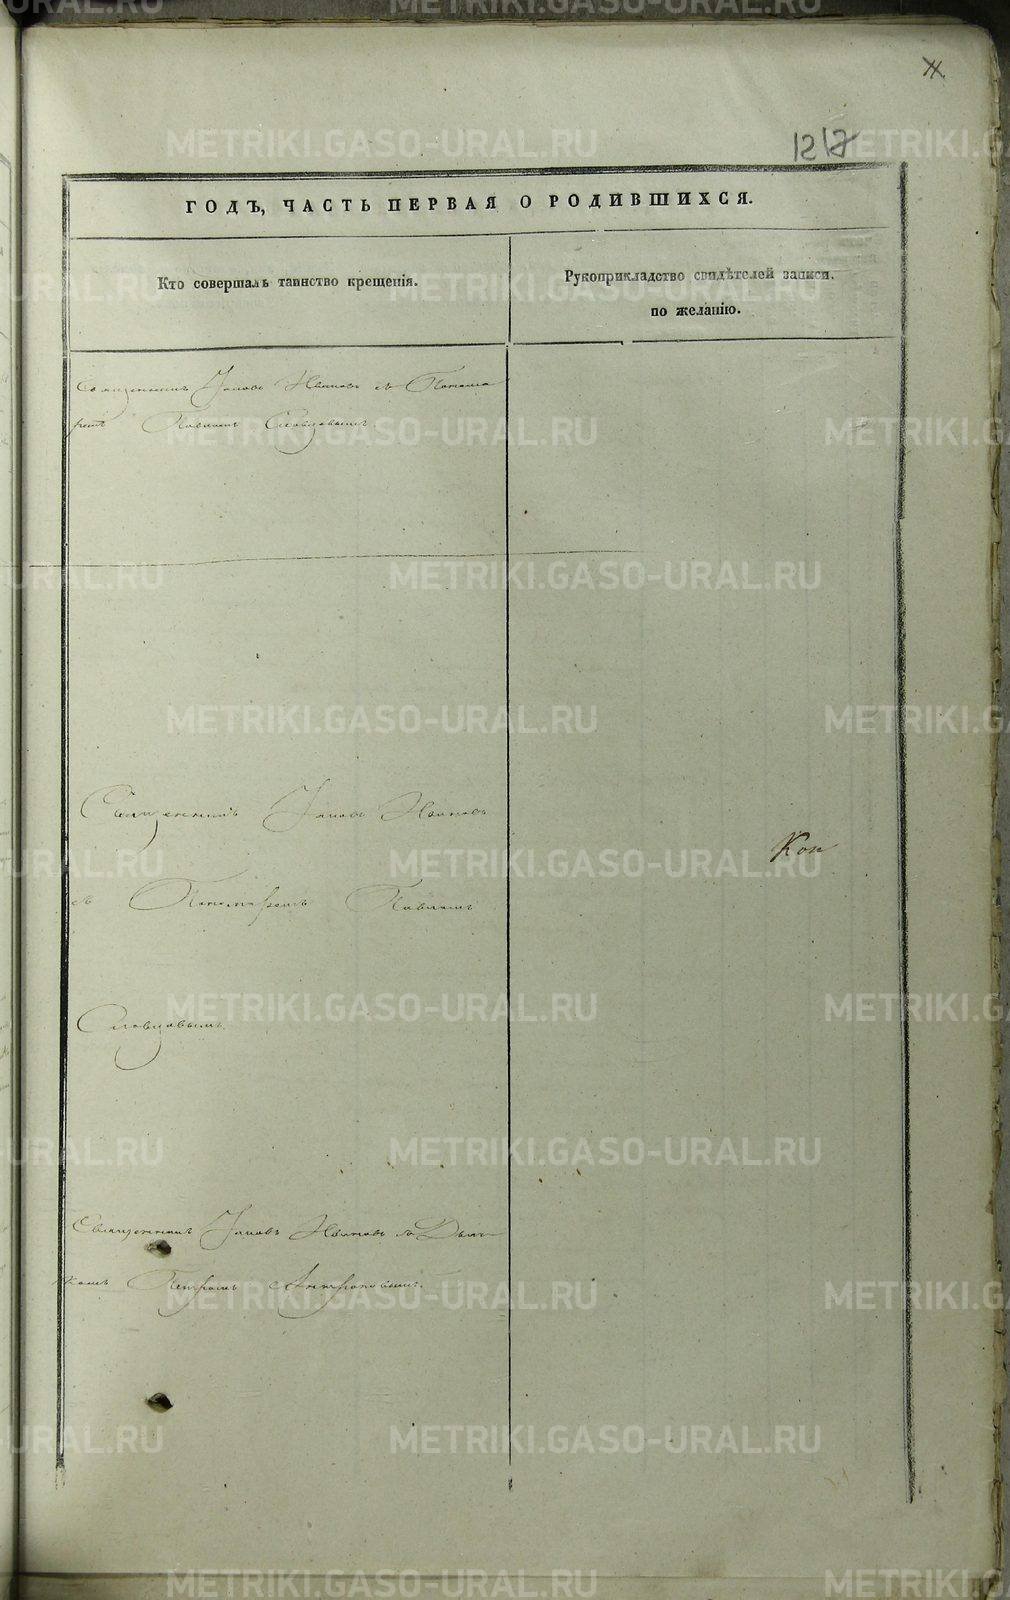 METRIKI.GASO-URAL.RU
12
ГОДЪ, ЧАСТЬ ПЕРВАЯ О РОДИВШИХСЯ.
Кто совершалъ таинство крещенія.
Рукоприкладство свидѣтелей записи.
по желанію.
Священникъ Іаковъ Ивановъ съ Понома
ремъ Павломъ Словцовымъ.
Священникъ Іаковъ Ивановъ
съ Пономаремъ Павломъ
Словцовымъ.
Священникъ Іаковъ Ивановъ съ Дьяч
комъ Петромъ
Коп